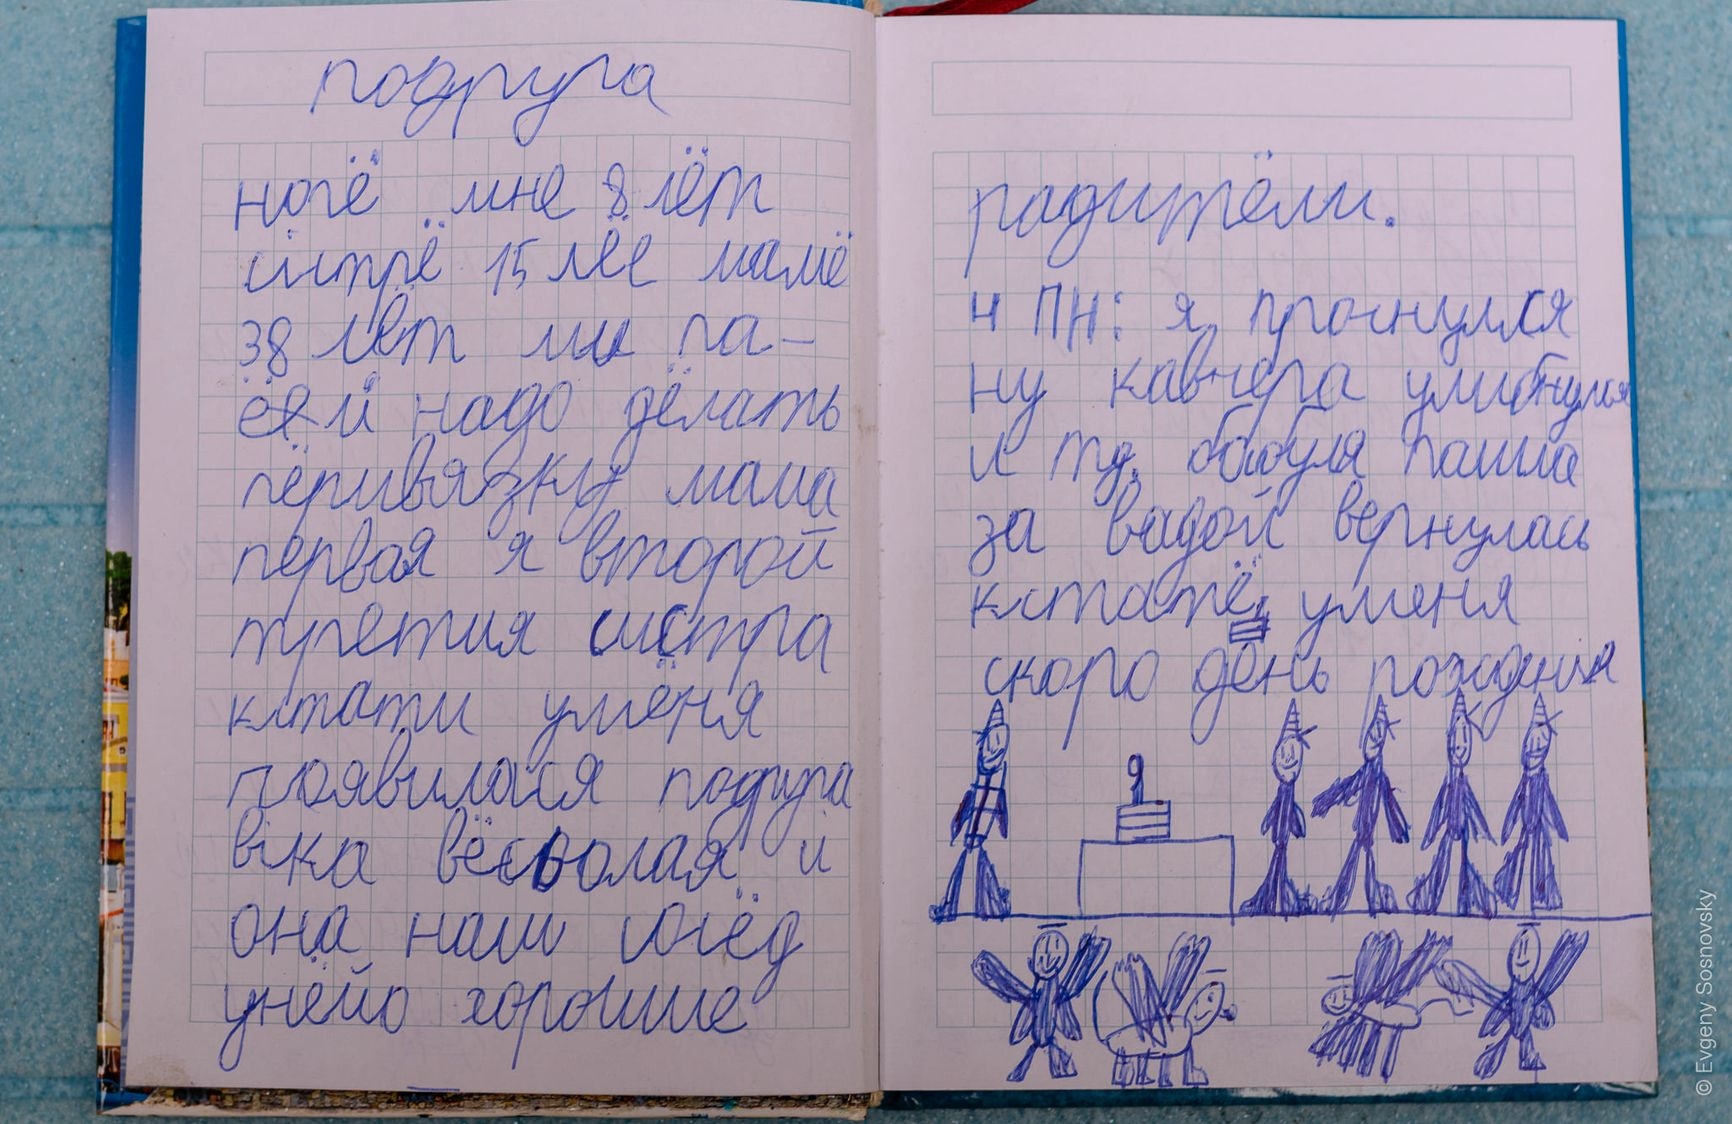 подруга
ногё мне 8 лёт
систрё 15 лёе мамё
38 лёт ми па-
ёёй надо дёлать
пёривязку мама
первая я второй
третия систра
кстати у мёня
появилася подруга
віка вёсолая и
она наш сосёд
унёйо хорошие
радитёли.
ч ПН: я проснулся
ну как вчера улибнулся
и тд. бабуля пашла
за вадой вернулась
кстатё, у меня
скоро день рождения
9
© Evgeny Sosnovsky